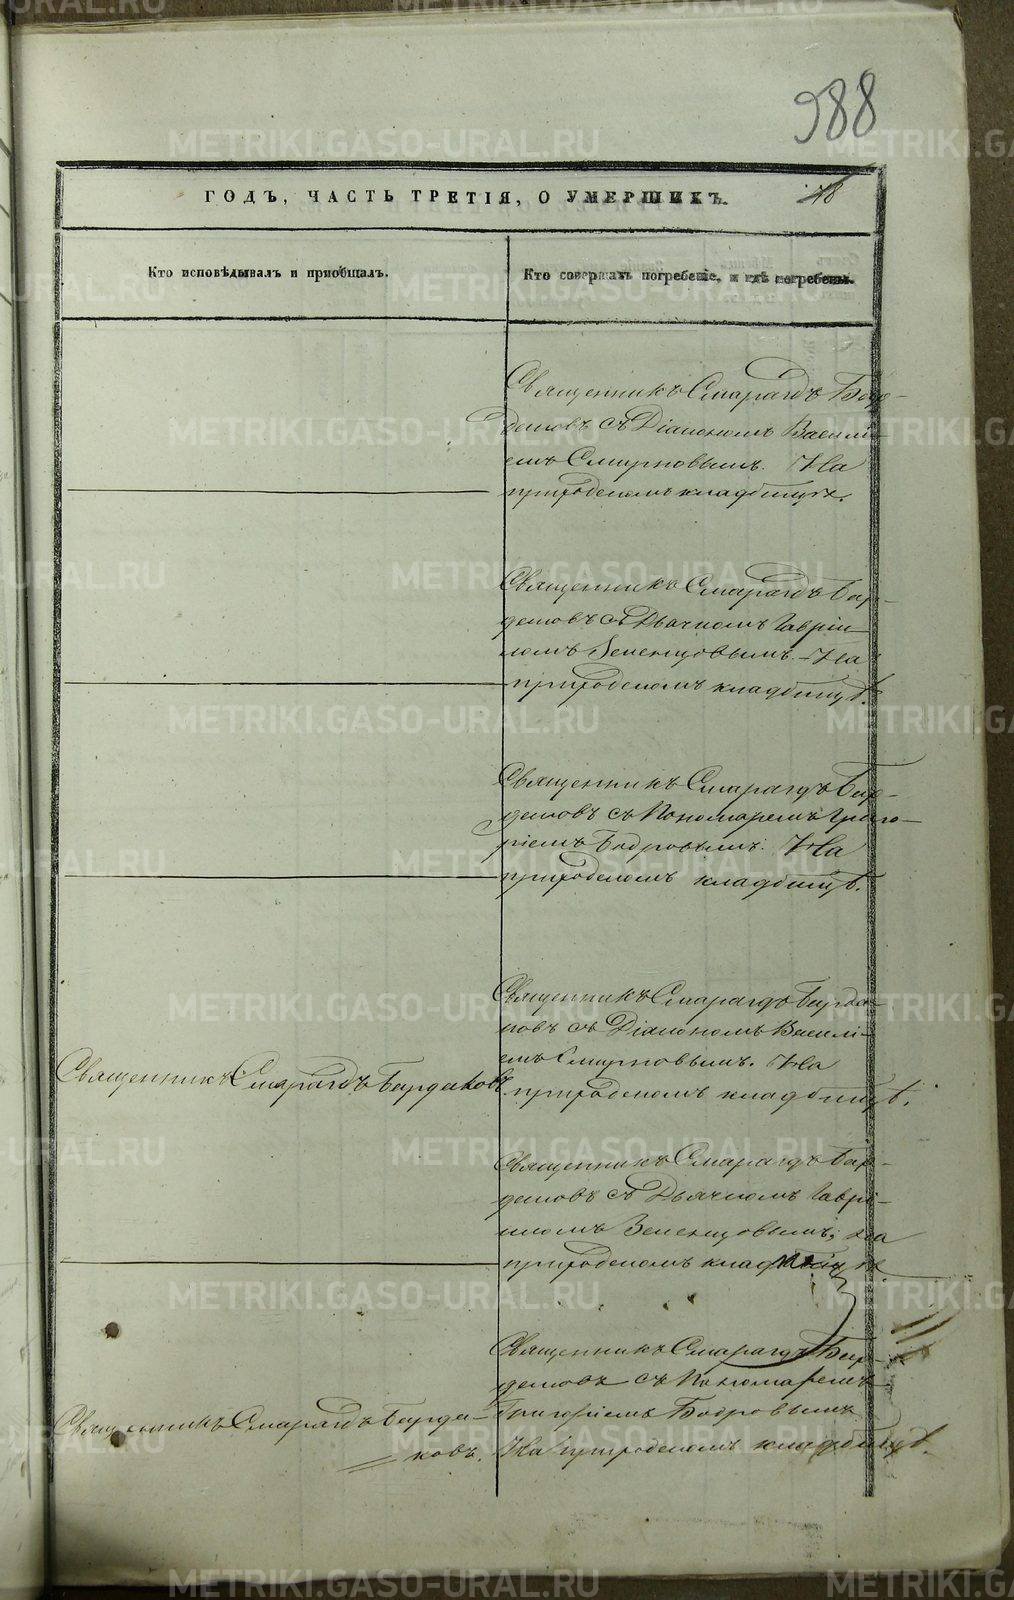 988
ГОДЪ, ЧАСТЬ ТРЕТІЯ, О УМЕРШИХЪ.
Кто исповѣдывалъ и приобщалъ.
Кто совершалъ погребеніе, и гдѣ погребены.
Священникъ Смарагдъ Бур-
даковъ съ Діакономъ Василі-
емъ Смирновымъ. На
приходскомъ кладбищѣ.
Священникъ Смарагдъ Бур-
даковъ съ Дьячкомъ Гаврі-
иломъ Земенцовымъ. - На
приходскомъ кладбищѣ.
Священникъ Смарагдъ Бур-
даковъ съ Пономаремъ Григо-
ріемъ Бобровымъ. На
приходскомъ кладбищѣ.
Священникъ Смарагдъ Бурдаковъ.
Священникъ Смарагдъ Бурда-
ковъ съ Діакономъ Василі-
емъ Смирновымъ. На
приходскомъ кладбищѣ.
Священникъ Смарагдъ Бур-
даковъ съ Дьячкомъ Гаврі-
иломъ Земенцовымъ, на
приходскомъ кладбищѣ
Священникъ Смарагдъ Бурда-
ковъ.
Священникъ Смарагдъ Бур-
даковъ съ Пономаремъ
Григоріемъ Бобровымъ
На приходскомъ кладбищѣ.
METRIKI.GASO-URAL.RU